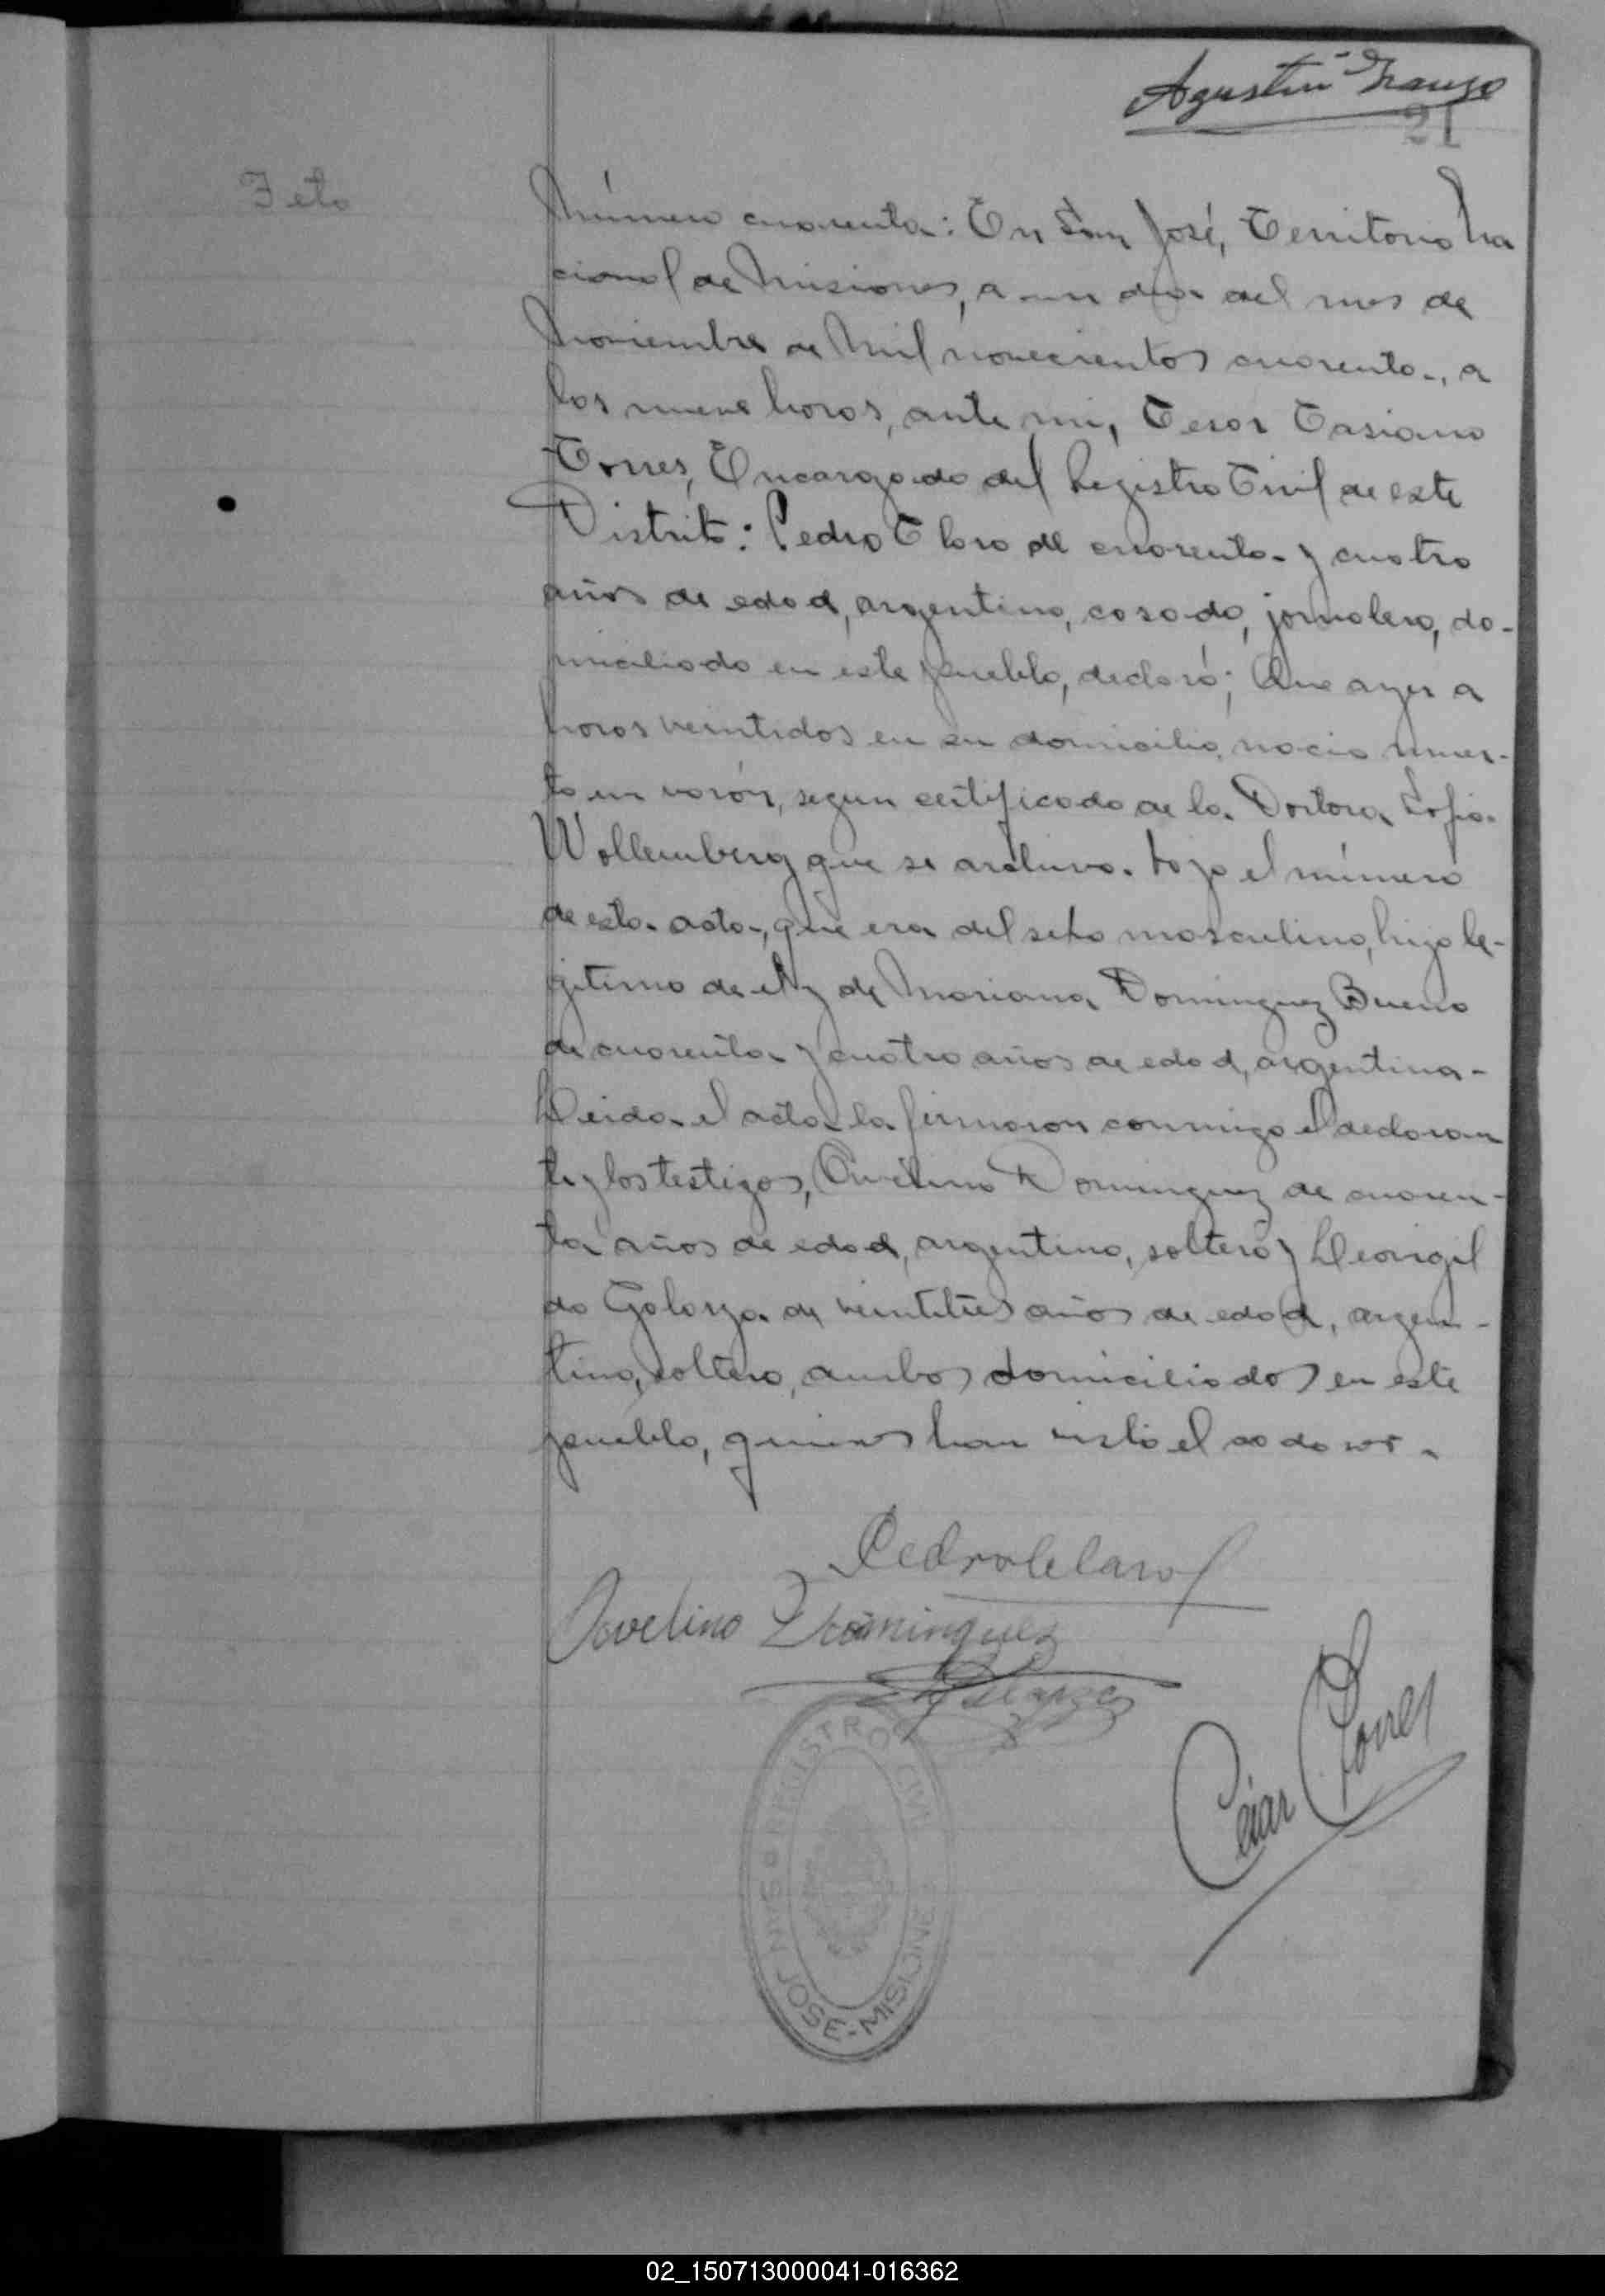 Agustín Franzo
21
Feto
Número cuarenta: En San José, Territorio Na
cional de Misiones, a un dia del mes de
Noviembre de Mil novecientos cuarenta, a
las nueve horas, ante mi, Cesar Casiano
Torres, Encargado del Registro Civil de este
Distrito: Pedro Claro de cuarenta y cuatro
años de edad, argentino, casado, jornalero, do-
miciliado en este pueblo, declaró; Que ayer a
horas veintidos en su domicilio, nacio muer-
to un varón, segun certificado de la Doctora Sofia
Wollemberg que se archiva bajo el número
de esta acta, que era del sexo masculino, hijo le-
gitimo de el y de Mariana Dominguez Bueno
de cuarenta y cuatro años de edad, argentina-
Leida el acta la firmaron conmigo el declaran
te y los testigos, Ovelino Dominguez de cuaren-
ta años de edad, argentino, soltero y Leovigil
do Galarza de veintitres años de edad, argen-
tino, soltero, ambos domiciliados en este
pueblo, quienes han visto el
Pedro Claro
Ovelino Dominguez
Galarza
César Torres
REGISTRO CIVIL
SAN JOSE - MISIONES
02_150713000041-016362